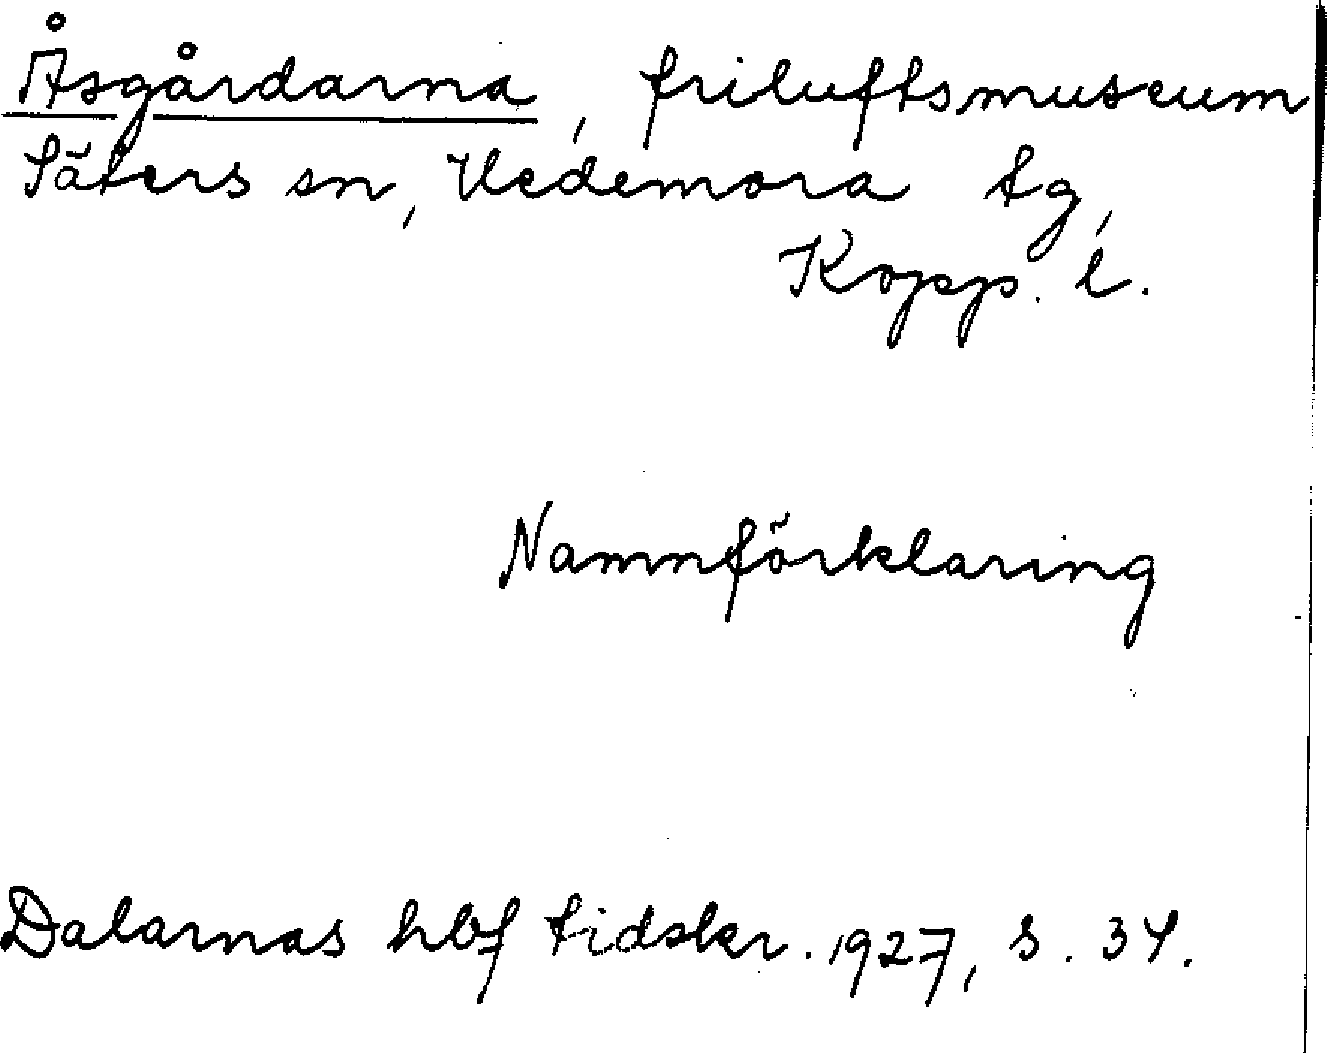 Åsgårdarna, friluftsmuseum
Säters sn, Hedemora tg,
Kopp. l.
Namnförklaring
Dalarnas hbf tidskr. 1927, s. 34.